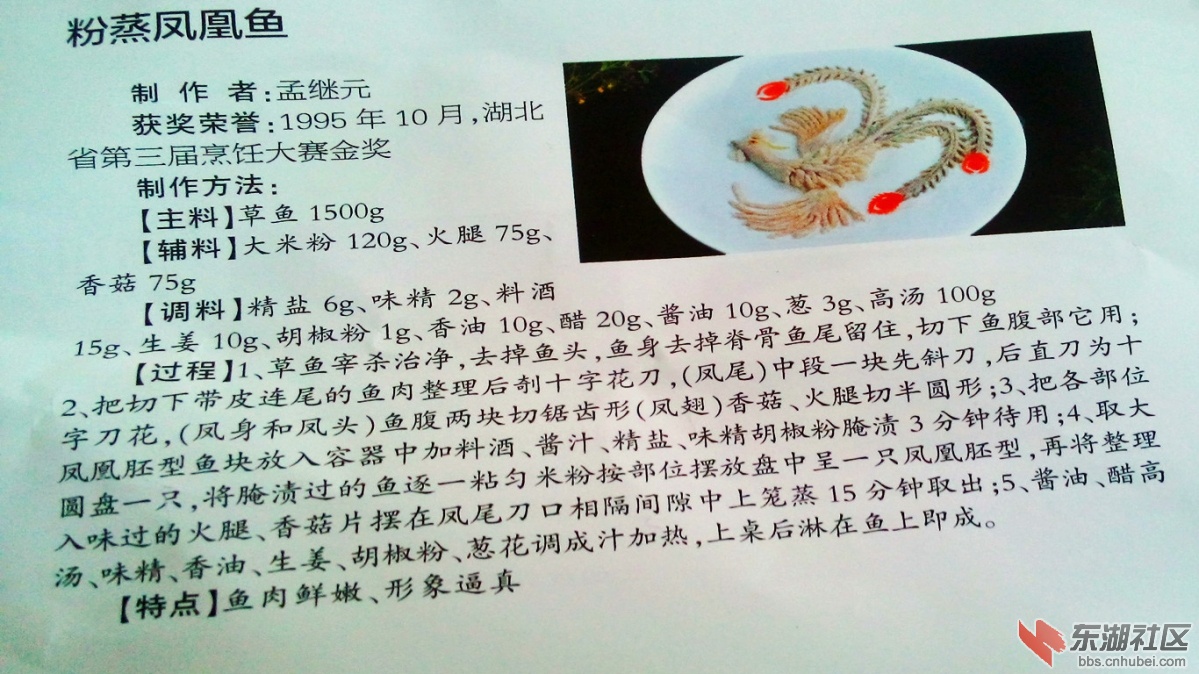 粉蒸凤凰鱼
制 作 者:孟继元
获奖荣誉:1995 年 10 月,湖北
省第三届烹饪大赛金奖
制作方法:
【主料】草鱼 1500g
【辅料】大米粉 120g、火腿 75g、
香菇 75g
【调料】精盐 6g、味精 2g、料酒
15g、生姜 10g、胡椒粉 1g、香油 10g、醋 20g、酱油 10g、葱 3g、高汤 100g
【过程】1、草鱼宰杀治净,去掉鱼头,鱼身去掉脊骨鱼尾留住,切下鱼腹部它用;
2、把切下带皮连尾的鱼肉整理后剞十字花刀,(凤尾)中段一块先斜刀,后直刀为十
字刀花,(凤身和凤头)鱼腹两块切锯齿形(凤翅)香菇、火腿切半圆形;3、把各部位
凤凰胚型鱼块放入容器中加料酒、酱汁、精盐、味精胡椒粉腌渍 3 分钟待用;4、取大
圆盘一只,将腌渍过的鱼逐一粘匀米粉按部位摆放盘中呈一只凤凰胚型,再将整理
入味过的火腿、香菇片摆在凤尾刀口相隔间隙中上笼蒸 15 分钟取出;5、酱油、醋高
汤、味精、香油、生姜、胡椒粉、葱花调成汁加热,上桌后淋在鱼上即成。
【特点】鱼肉鲜嫩、形象逼真
东湖社区
bbs.cnhubei.com